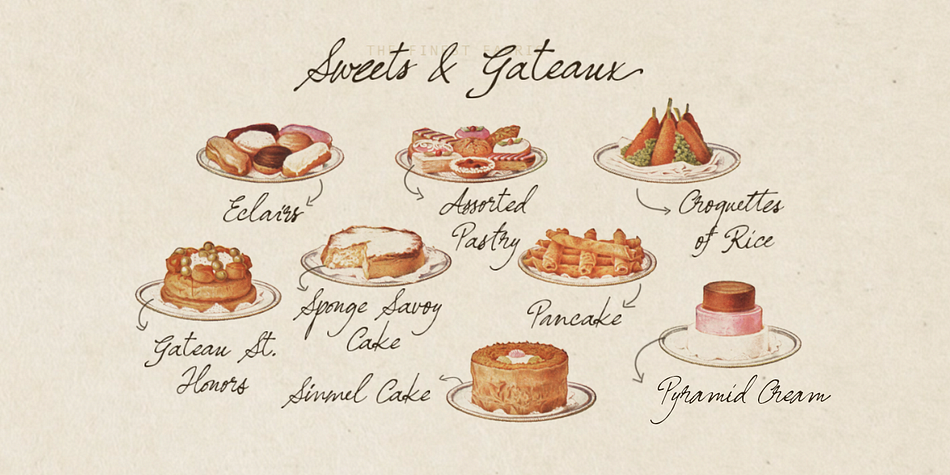 THE FINEST
Sweets & Gateaux
Eclairs
Assorted
Pastry
Croquettes
of Rice
Gateau St.
Honors
Sponge Savoy
Cake
Pancake
Simmel Cake
Pyramid Cream